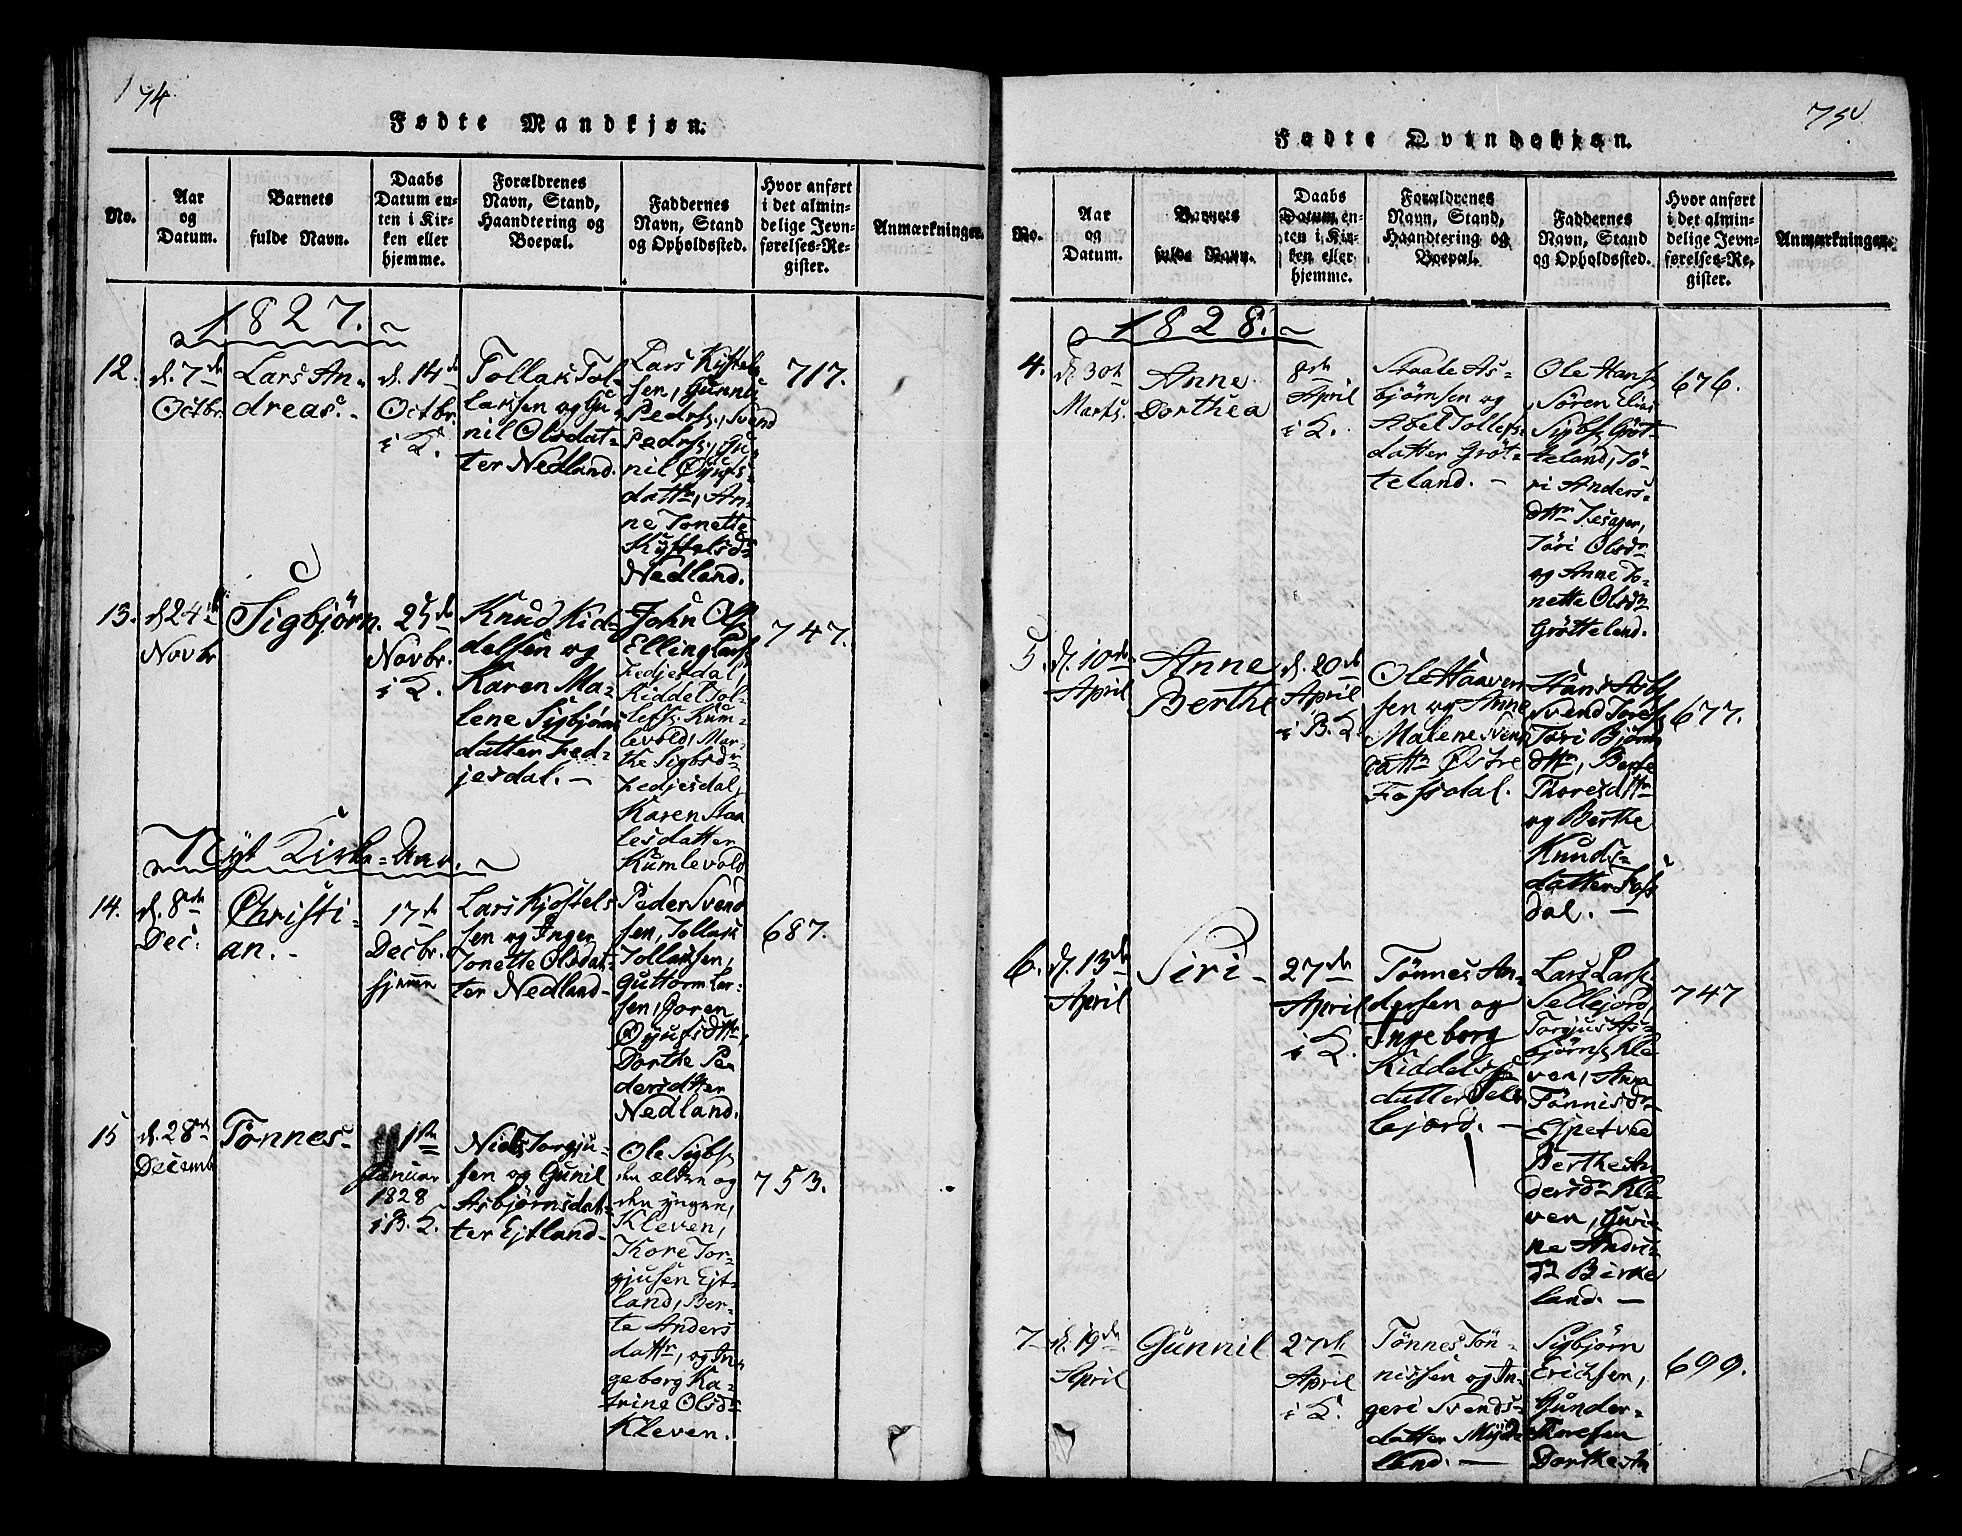 74
Fødte Mandkjøn.
No.
Aar
og
Datum.
Barnets
fulde Navn.
Daabs
Datum en-
ten i Kir-
ken eller
hjemme.
Forældrenes
Navn, Stand,
Haandtering og
Boepæl.
Faddernes
Navn, Stand
og Opholdssted.
Hvor anført
i det almin-
delige Jevn-
førelses-Re-
gister.
Anmærkninger.
1827.
12.
d. 7de
Octbr.
Lars An-
dreas.
d. 14de
Octbr.
i K.
Tollak Tol-
laksen og Gu-
nil Olsdat-
ter Nedland.
Lars Kystel-
sen, Gunnu
Peders., Svend
Peders., Gu-
nil Øyufs-
dattr, An-
ne Tonette
Kystelsdr
Nedland.
717.
13.
d. 24de
Novbr
Sigbjørn.
25de
Novbr.
i K.
Knud Kid-
delsen og
Karen Ma-
lene Sigbjørns
datter Fed-
jesdal. -
John Ols.
Elling Lars.
Fedjesdal,
Kiddel Tol-
lefs. Kum-
levold, Mar-
the Sigbsdr
Fedjesdal,
Karen Staa
lesdatter
Kumlevold
747.
Nyt Kirke-Aar.
14.
d. 8de
Dec.
Christi-
an. -
17de
Decbr.
hjemme
Lars Kjøstels
sen og Inger
Tonette Olsdat-
ter Nedland -
Peder Svend
sen, Tollak
Tollaksen,
Guttorm Lar-
sen, Goren
Øyufsdttr,
Dorthe Pe
dersdtter
Nedland.
687.
15
d. 28de
Decemb
Tønnes -
1ste
Januar
1828
i B. K.
Niels Torgju-
sen og Gunil
Asbjørnsdat-
ter Ejtland -
Ole Sigbs.
den ældre og
den yngre,
Kleven,
Thore Tor-
gjusen Ejt-
land, Ber-
te Anders
dattr, og In-
geborg Ka-
trine Olsdr
Kleven.
753.
75
Fødte Qvindekjøn.
No.
Aar
og
Datum.
Barnets
fulde Navn.
Daabs
Datum en-
ten i Kir-
ken eller
hjemme.
Forældrenes
Navn, Stand,
Haandtering og
Boepæl.
Faddernes
Navn, Stand
og Opholdssted.
Hvor anført
i det almin-
delige Jevn-
førelses-Re-
gister.
Anmærkninger.
1828.
4.
d. 30te
Marts.
Anne
Dorthea
8de
April
i K.
Staale As-
bjørnsen og
Abel Tollefs-
datter Grøt-
teland. -
Ole Hans.
Søren Elias
Sigbs. Grøt-
teland, Tø-
ri Anders-
dttr
Tøri Olsdr
og Anne To-
nette Olsdr
Grøtteland.
676.
5.
d. 10de
April
Anne
Berthe
d. 20de
April
i B. K.
Ole Haaven
sen og Anne
Malene Svens
dattr Østre
Fossdal.
Hans Asbs.
Svend Tores.
Tøri Bjørns
dttr, Berte
Thoresdttr
og Berthe
Knuds-
datter Foss
dal. -
677.
6.
d. 13de
April
Siri -
27de
April
i K.
Tønnes An-
dersen og
Ingeborg
Kiddels-
datter Sel-
lejord. -
Lars Lars.
Sellejord,
Torgjus As-
bjørns. Kle
ven, Anna
Tønnisdr
Espetved
Berthe An
dersdr Kle
ven, Guri-
ne Andrs-
dr Birke
land. -
747
7.
d. 19de
April
Gunnil
27de
April
i K.
Tønnes Tøn-
nissen og In-
geri Svends-
datter
land. -
Sigbjørn
Ericksen,
Gunder
Thoresen
Dorthe An
699.